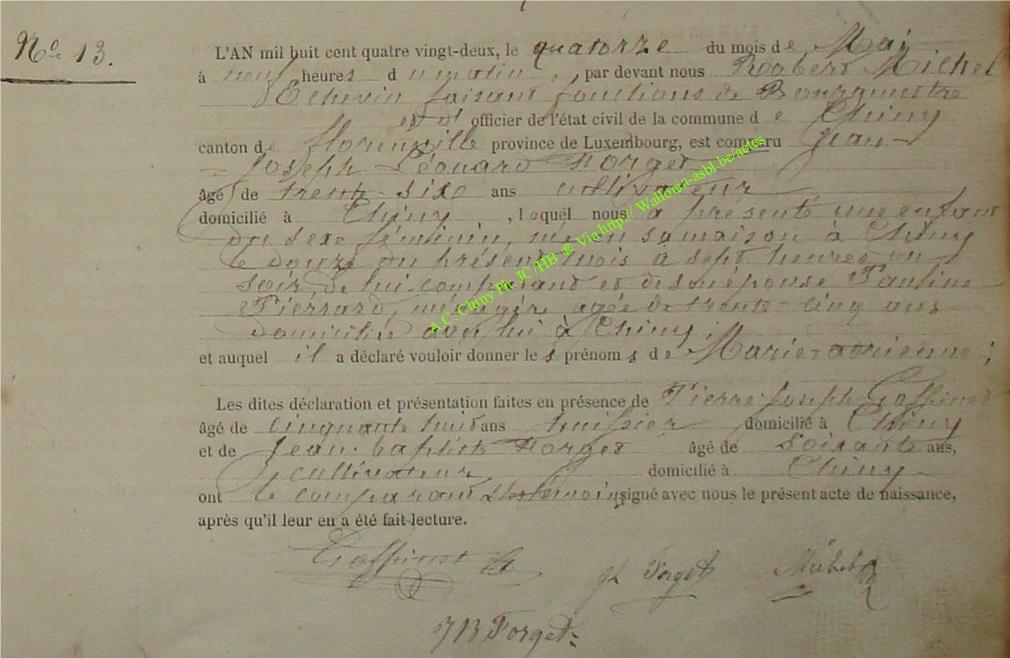 No 13.
L'AN mil huit cent quatre vingt-deux, le quatorze du mois de Mai
à neuf heures du matin, par devant nous Robert Michel
Echevin faisant fonctions de Bourgmestre
et d' officier de l'état civil de la commune de Chiny
canton de florenville province de Luxembourg, est comparu Jean-
Joseph Edouard Forget
âgé de trente-six ans cultivateur
domicilié à Chiny, lequel nous a présenté une enfant
du sexe féminin, née en sa maison à Chiny
le douze du présent mois à sept heures du
soir de lui comparant et de son épouse Pauline
Pierrard, ménagère agée de trente-cinq ans
domiciliée avec lui à Chiny
et auquel il a déclaré vouloir donner les prénoms de Marie-adrienne;
Les dites déclaration et présentation faites en présence de Pierre-Joseph Goffinet
âgé de cinquante huit ans huissier domicilié à Chiny
et de Jean-baptiste Forget âgé de soixante ans,
cultivateur domicilié à Chiny
ont le comparant & les témoins signé avec nous le présent acte de naissance,
après qu'il leur en a été fait lecture.
Goffinet
Forget Michel
JB Forget
A.C. Chiny Ph JC /HB ® Via http:// Wallonia-asbl.be/actes